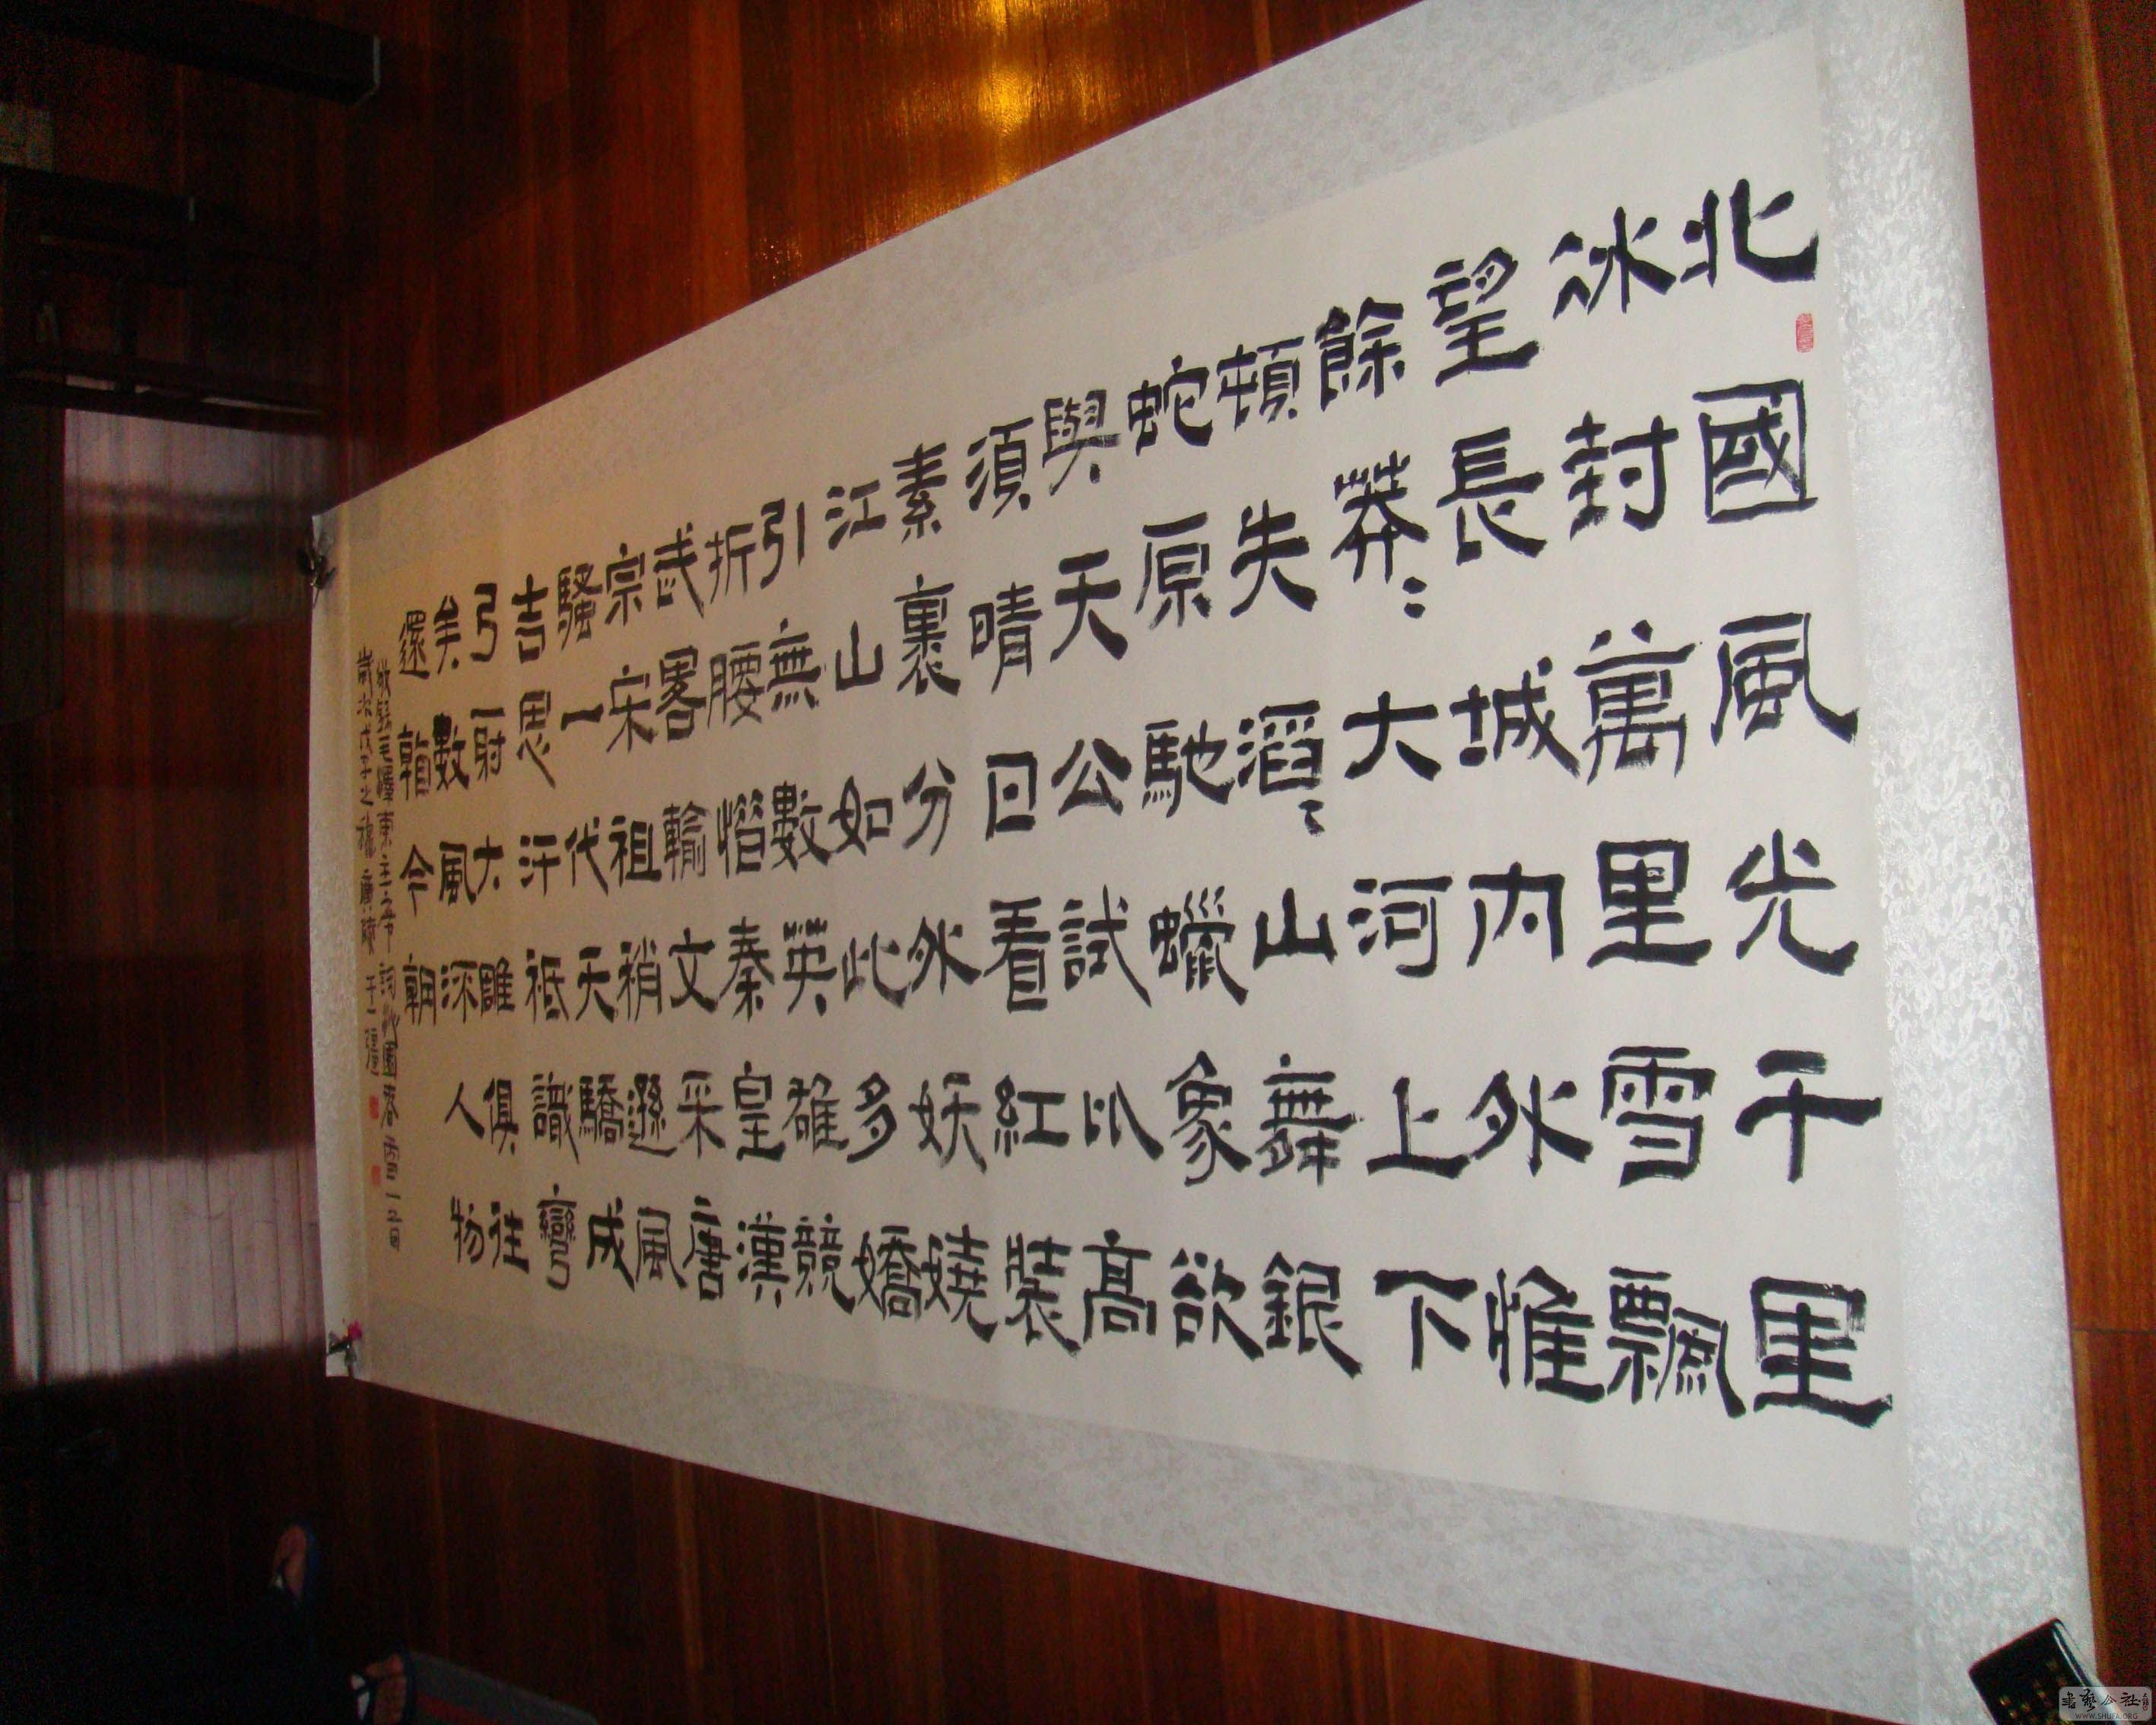 北國風光千里
冰封萬里雪飄
望長城內外惟
餘莽〻大河上下
頓失滔〻山舞銀
蛇原馳蠟象欲
與天公試比高
須晴日看紅裝
素裹分外妖嬈
江山如此多嬌
引無數英雄競
折腰惜秦皇漢
武略輸文采唐
宗宋祖稍遜風
騷一代天驕成
吉思汗祇識彎
弓射大雕俱往
矣數風流人物
還看今朝
敬錄毛澤東主席詞沁園春雪一首
歲次戊子之
書藝公社
WWW.SHUFA.ORG